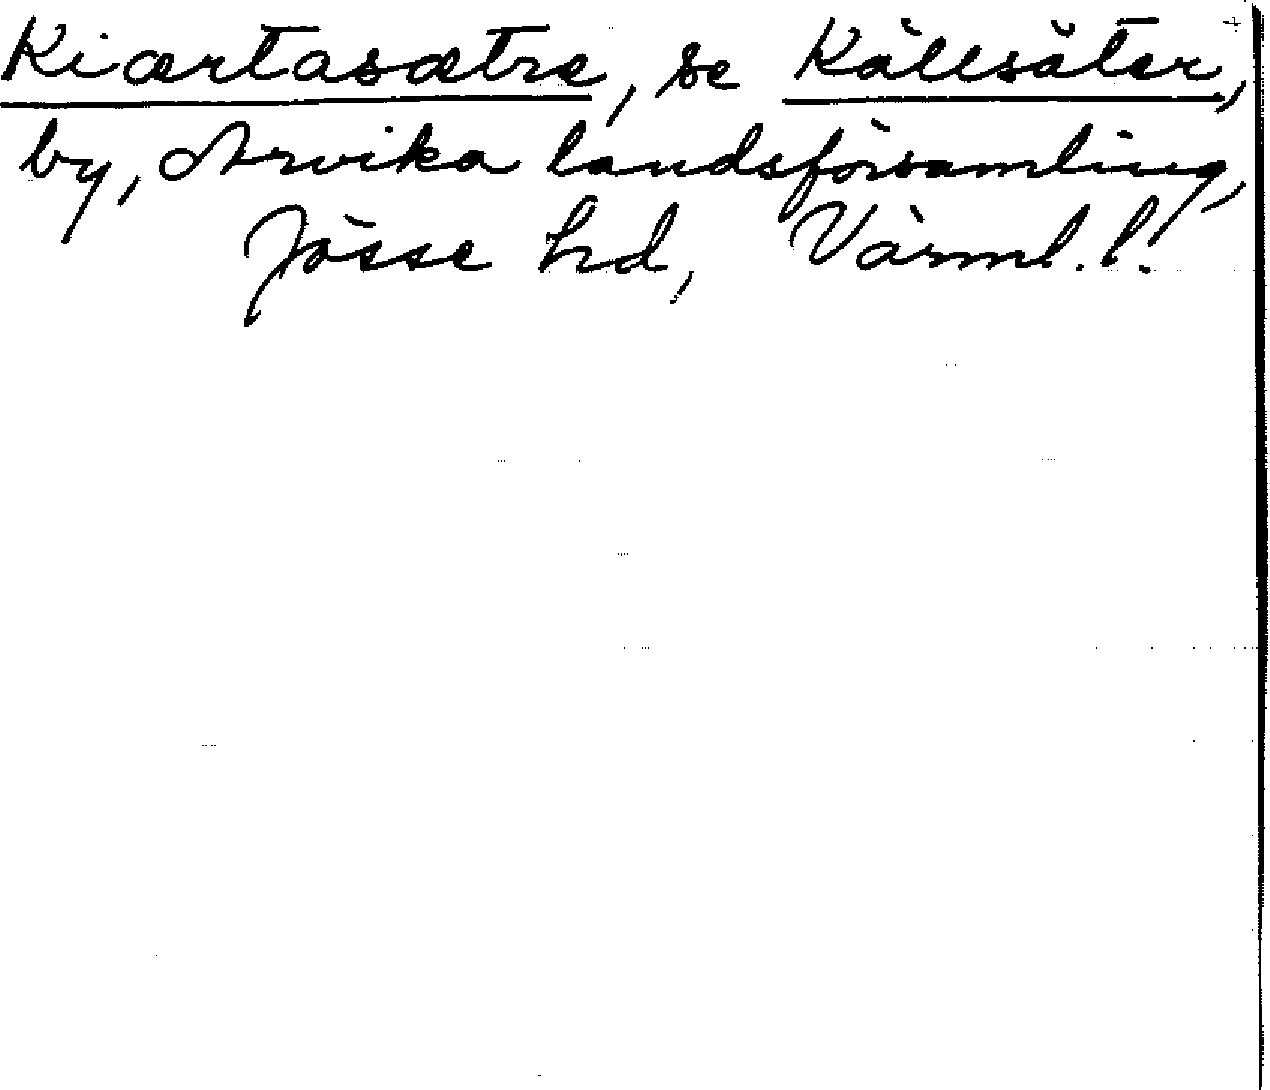 Kiærtasætre, se Källsäter,
by, Arvika landsförsamling,
Jösse hd, Värml. l.